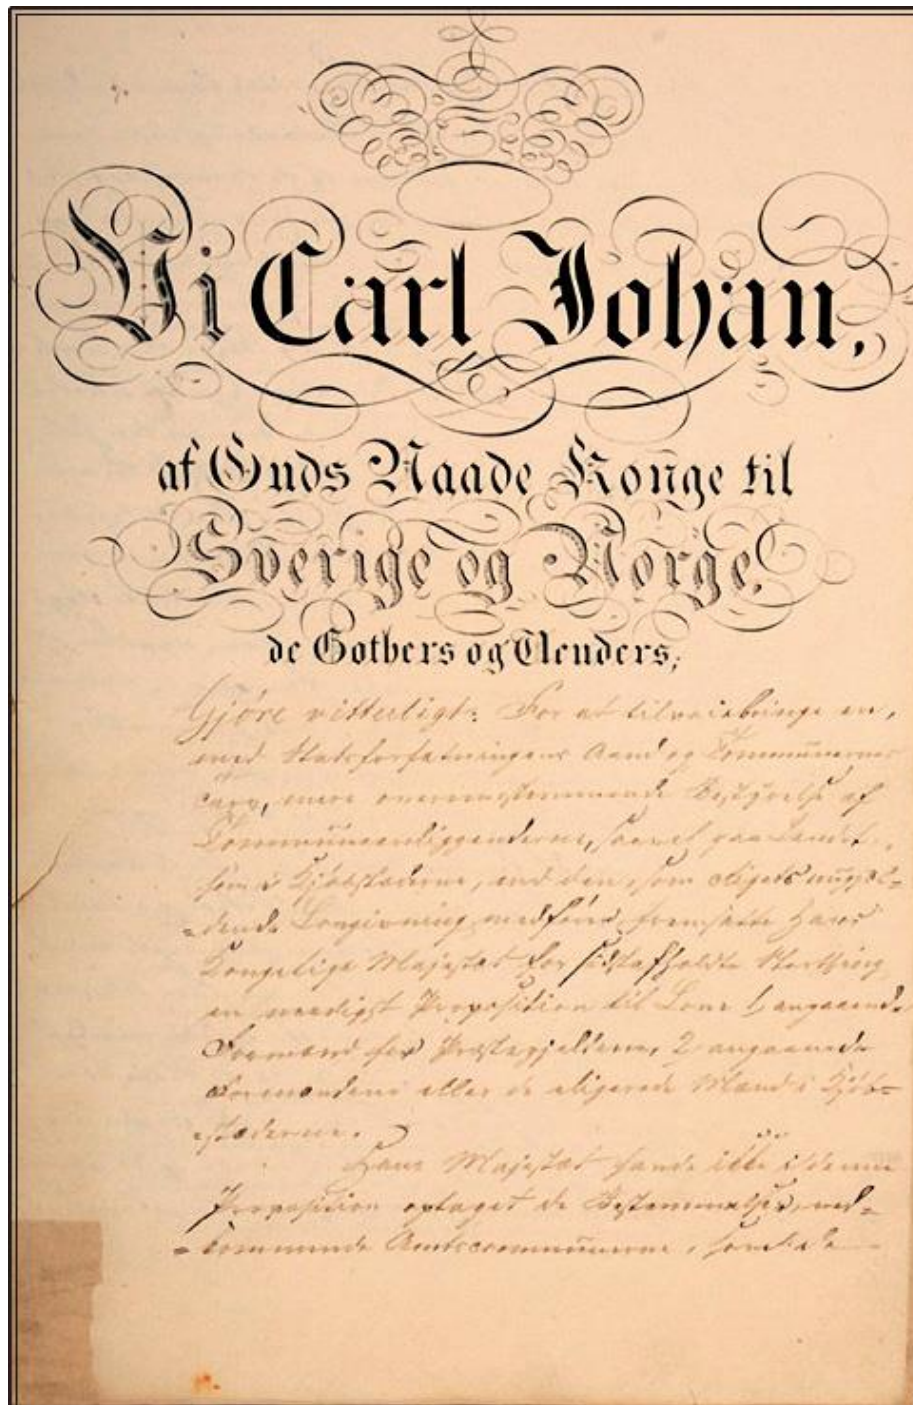 Vi Carl Johan,
af Guds Naade Konge til
Sverige og Norge,
de Gothers og Venders,
Gjöre vitterligt: For at tilveiebringe en,
med Statsforfatningens Aand og Communernes
Tarv, mere overensstemmende Bestyrelse af
Communeanliggenderne, saavel paa Landet,
som i Kjöbstæderne, end den, som
Lovgivning medförer, fremsatte Hans
Kongelige Majestæt for sidstafholdte Storthing
en naadigst Proposition til Love 1, angaaende
Formænd for Præstegjeldene, 2 angaaende
Formændene eller de eligerede Mænd i Kjöb-
stæderne.
Hans Majestæt havde ikke i denne
Proposition optaget de Bestemmelser, ved-
kommende Amtscommunerne,